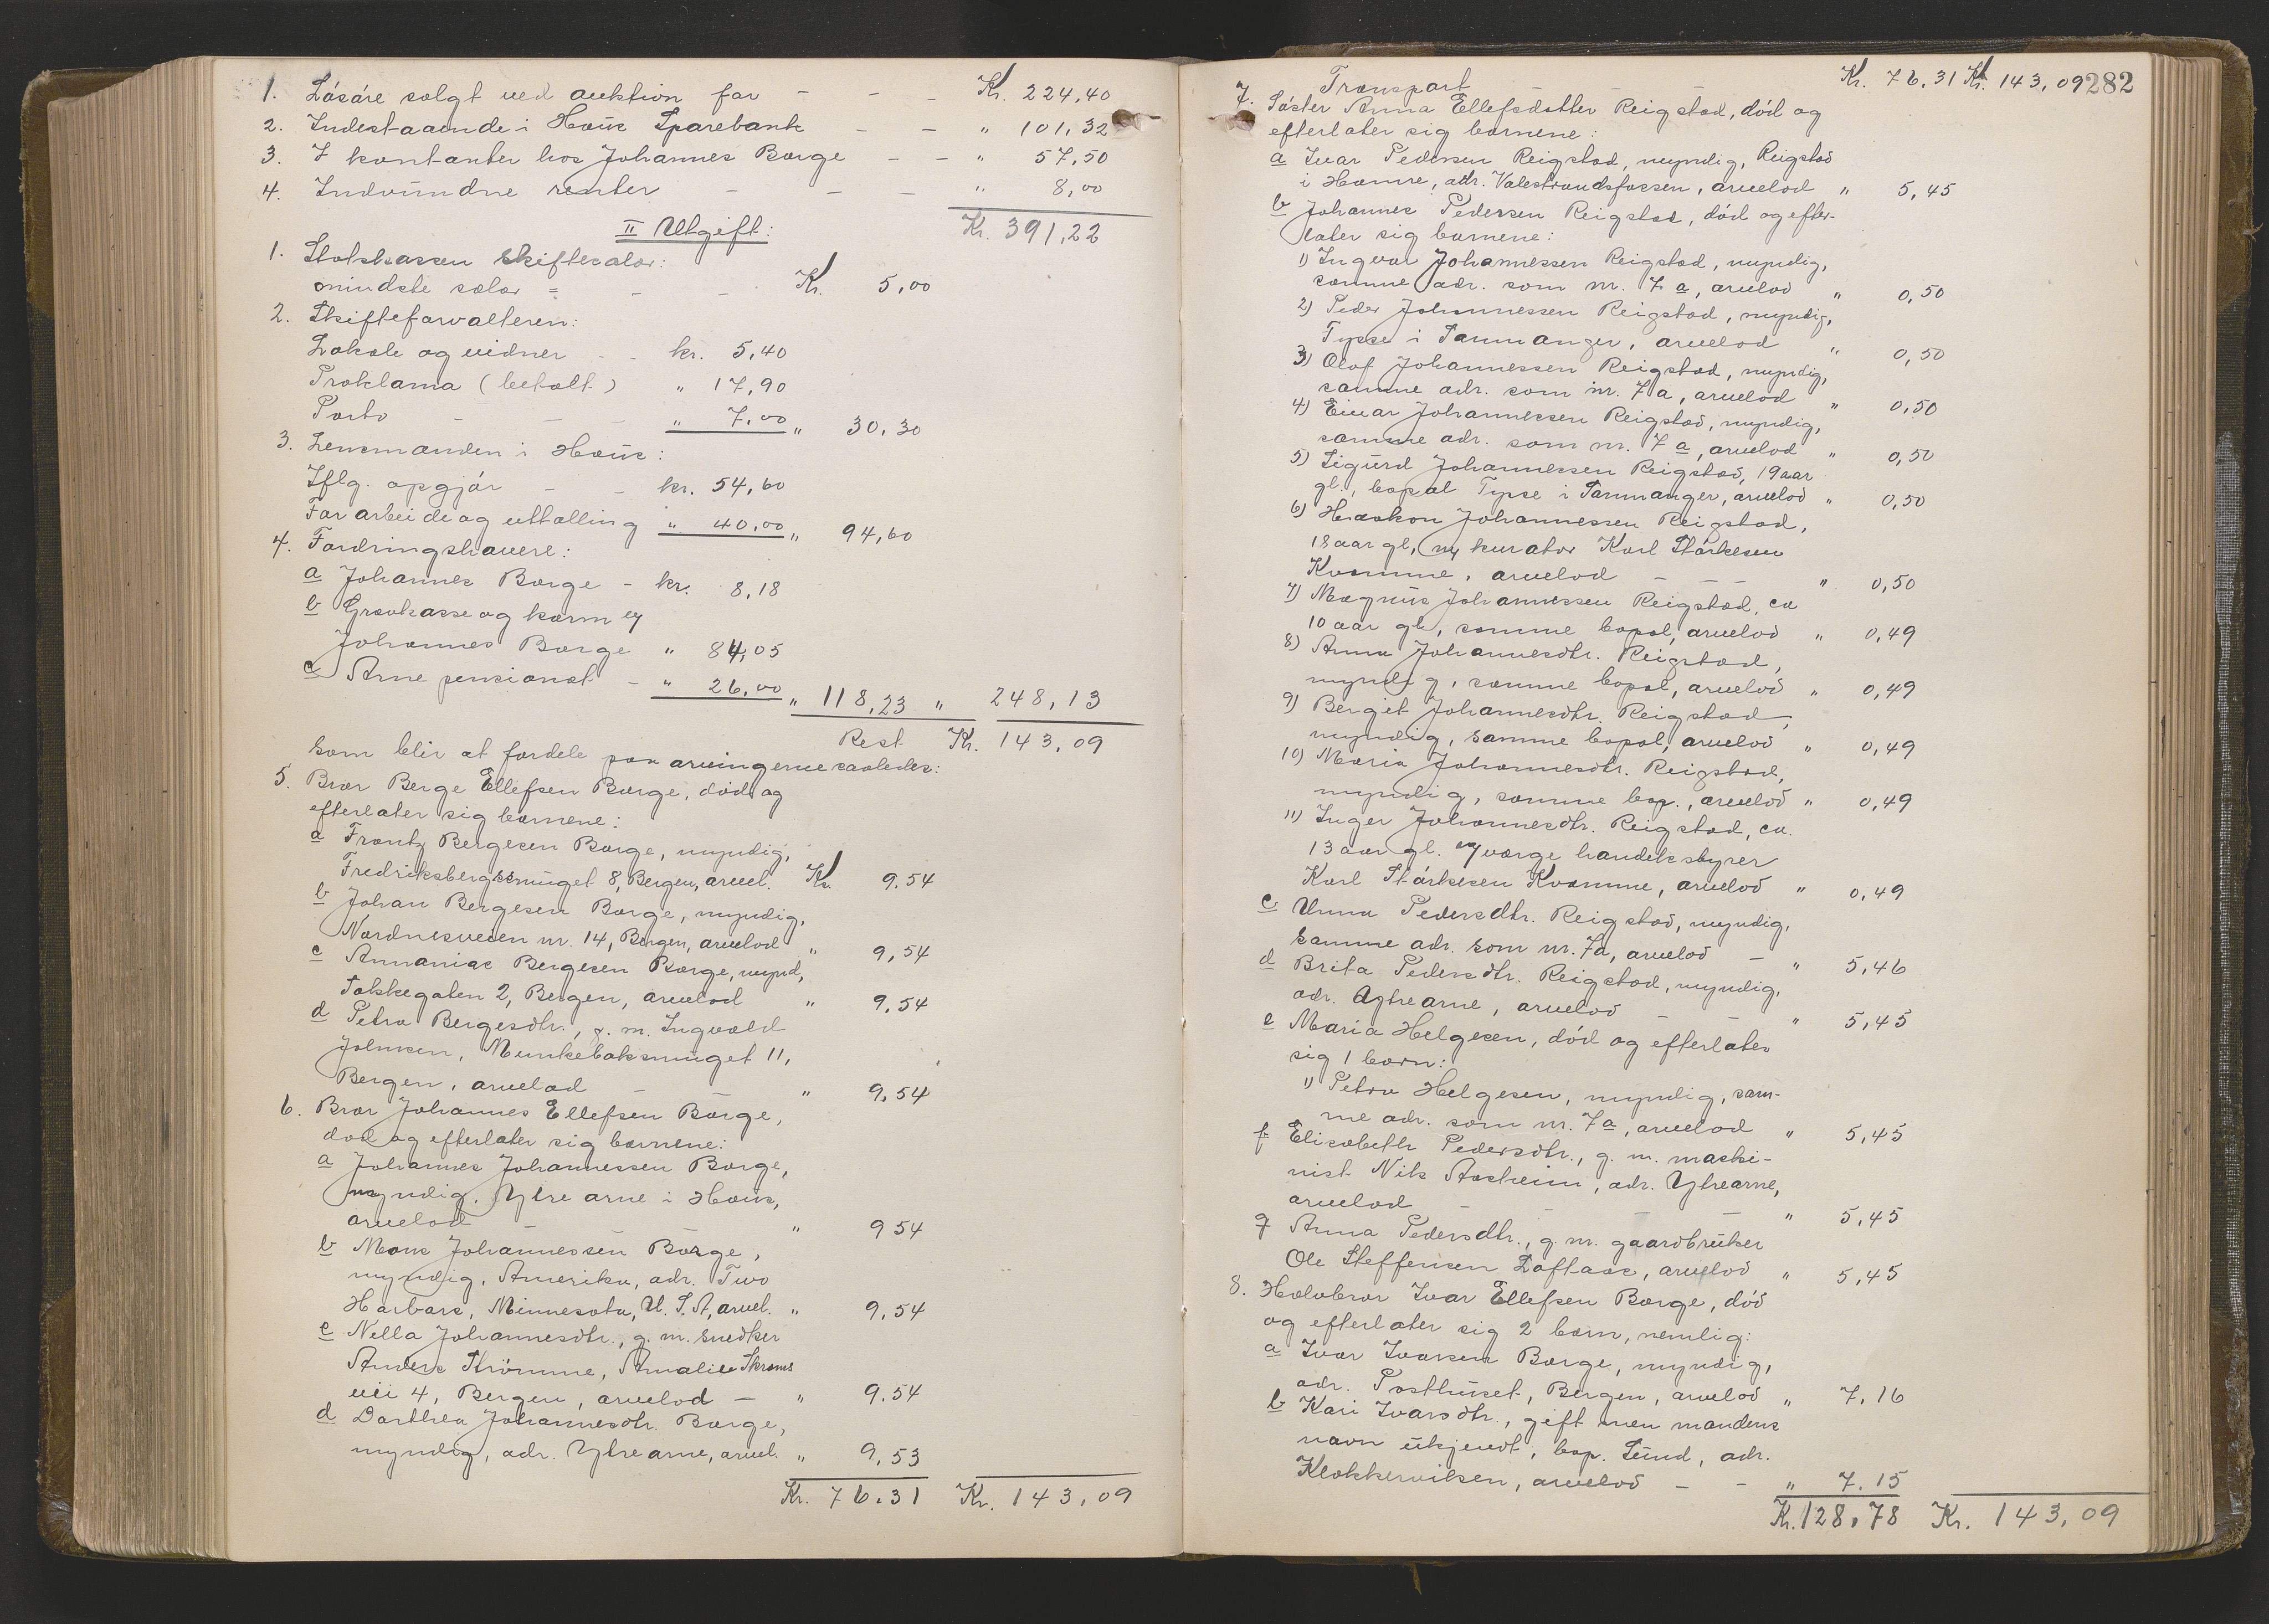 1. Lösöre solgt ved auktion for - - - Kr. 224,40
2. Indestaaende i Haus Sparebank - - " 101,32
3. I kontanter hos Johannes Borge - - " 57,50
4. Indvundne renter - - - " 8,00
Kr. 391,22
II Utgift:
1. Statskassen skiftesalær:
mindste salær = - - Kr. 5,00
2. Skifteforvalteren:
Lokale og vidner - - kr. 5,40
Proklama (betalt) " 17,90
Porto - - - " 7,00 " 30,30
3. Lensmanden i Haus:
Iflg. opgjør - - kr. 54,60
For arbeide og utlodding " 40,00 " 94,60
4. Fordringshavere:
a Johannes Borge - kr. 8,18
b Gravkasse og karm v/
Johannes Borge " 84,05
c Arne pensionat - " 26,00 " 118,23 " 248,13
Rest Kr. 143,09
som blir at fordele paa arvingerne saaledes:
5. Bror Berge Ellefsen Borge, död og
efterlater sig barnene:
a Frantz Bergesen Borge, myndig,
Fredriksbergssmuget 8, Bergen, arvel. Kr. 9.54
b Johan Bergesen Borge, myndig,
Nordnesveien nr. 14, Bergen, arvelod " 9,54
c Annanias Bergesen Borge, mynd,
Tokkegaten 2, Bergen, arvelod " 9.54
d Petra Bergesdtr., g. m. Ingvald
Johnsen, Munkebaksmuget 11,
Bergen, arvelod - " 9.54
6. Bror Johannes Ellefsen Borge,
död og efterlater sig barnene:
a Johannes Johannessen Borge,
myndig, Ytre arne i Haus,
arvelod - - " 9 54
b Mons Johannessen Borge,
myndig, Amerika, adr. Two
Harbors, Minnesota, U. S. A, arvel. " 9.54
c Nella Johannesdtr., g. m. snedker
Anders Strömme, Amalie Skrams
vei 4, Bergen, arvelod - " 9.54
d Dorthea Johannesdtr. Borge,
myndig, adr. Ytre arne, arvel. " 9,53
Kr. 76.31 Kr. 143,09
282
Transport Kr. 76,31 Kr. 143,09
7. Söster Anna Ellefsdatter Reigstad, död og
efterlater sig barnene:
a Ivar Pedersen Reigstad, myndig, Reigstad
i Hamre, adr. Valestrandsfossen, arvelod " 5,45
b Johannes Pedersen Reigstad, död og efter-
later sig barnene:
1) Ingvar Johannessen Reigstad, myndig,
samme adr. som nr. 7 a, arvelod " 0,50
2) Peder Johannessen Reigstad, myndig,
Tysse i Samnanger, arvelod " 0,50
3) Olaf Johannessen Reigstad, myndig,
samme adr. som nr. 7 a, arvelod " 0,50
4) Einar Johannessen Reigstad, myndig,
samme adr. som nr. 7 a, arvelod " 0,50
5) Sigurd Johannessen Reigstad, 19 aar
gl., bopæl Tysse i Samnanger, arvelod " 0,50
6) Haakon Johannessen Reigstad,
18 aar gl, v/ kurator Karl Störkesen
Kvamme, arvelod - - - " 0,50
7) Magnus Johannessen Reigstad, ca
10 aar gl, samme bopæl, arvelod " 0,49
8) Anna Johannesdtr. Reigstad,
myndig, samme bopæl, arvelod " 0,49
9) Berget Johannesdtr. Reigstad,
myndig, samme bopæl, arvelod " 0,49
10) Maria Johannesdtr. Reigstad,
myndig, samme bop., arvelod " 0,49
11) Inger Johannesdtr. Reigstad, ca.
13 aar gl. v/ verge handelsstyrer
Karl Störkesen Kvamme, arvelod " 0,49
c Unna Pedersdtr. Reigstad, myndig,
samme adr. som nr. 7a, arvelod - " 5,46
d Brita Pedersdtr. Reigstad, myndig,
adr. Ytrearne, arvelod - - " 5,45
e Maria Helgesen, död og efterlater
sig 1 barn:
1) Petra Helgesen, myndig, sam-
me adr. som nr. 7a, arvelod " 5,45
f Elisabeth Pedersdtr., g. m. maski-
nist Nils Aasheim, adr. Ytrearne,
arvelod - - - " 5,45
g Anna Pedersdtr., g. m. gaardbruker
Ole Steffensen Loftaas, arvelod " 5,45
8. Halvbror Ivar Ellefsen Borge, död
og efterlater sig 2 barn, nemlig:
a Ivar Ivarsen Borge, myndig,
adr. Posthuset, Bergen, arvelod " 7,16
b Kari Ivarsdtr., gift men mandens
navn ukjendt, bop. Sund, adr.
Klokkerviken, arvelod - - " 7.15
Kr. 128,78 Kr. 143,09